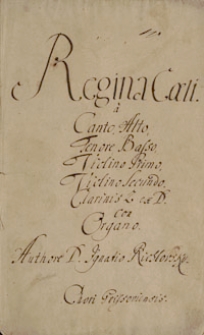 Regina Cæli.
à
Canto, Alto,
Tenore Basso,
Violino Primo,
Violino Secundo,
Clarinis 2. ex D.
con
Organo.
Authore D. Ignatio
Chori